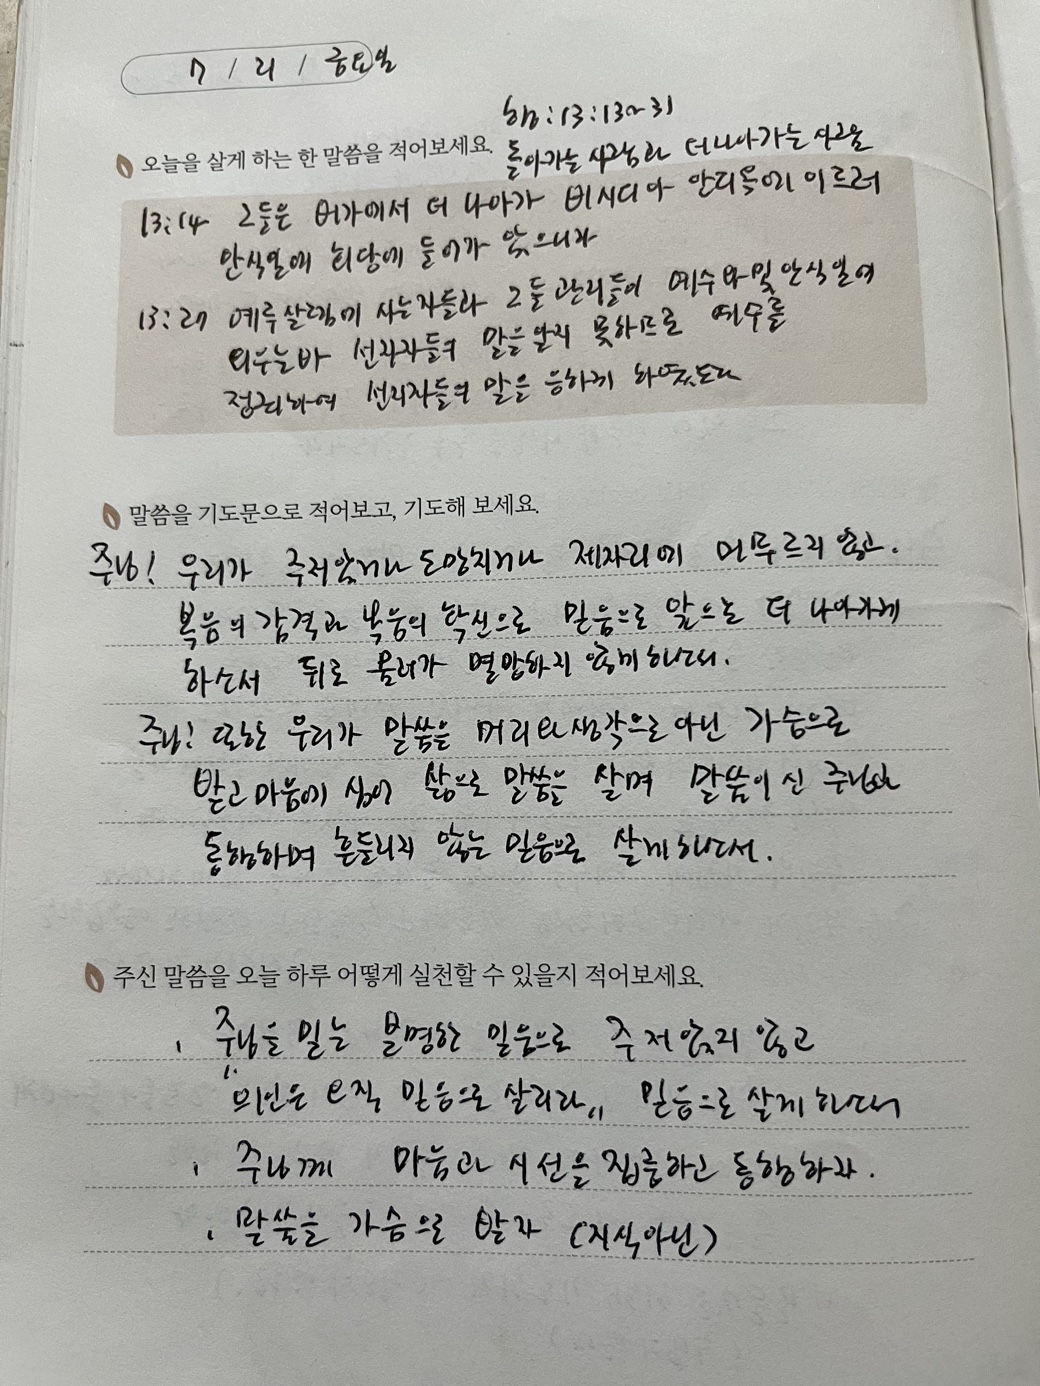 7 / 21 / 금요일
행:13:13~31
돌아가는 사람과 더 나아가는 사람들
오늘을 살게 하는 한 말씀을 적어보세요.
13:14 그들은 버가에서 더 나아가 비시디아 안디옥에 이르러
안식일에 회당에 들어가 앉으니라
13:27 예루살렘에 사는 자들과 그들 관리들이 예수와 및 안식일에
외우는바 선지자들의 말을 알지 못하므로 예수를
정죄하여 선지자들의 말을 응하게 하였도다
말씀을 기도문으로 적어보고, 기도해 보세요.
주님! 우리가 주저앉거나 도망치거나 제자리에 머무르지 않고.
복음의 감격과 복음의 확신으로 믿음으로 앞으로 더 나아가게
하소서 뒤로 물러가 멸망하지 않게 하소서.
주님! 또한 우리가 말씀을 머리와 생각으로 아닌 가슴으로
받고 마음에 심어 삶으로 말씀을 살며 말씀이신 주님과
동행하며 흔들리지 않는 믿음으로 살게 하소서.
주신 말씀을 오늘 하루 어떻게 실천할 수 있을지 적어보세요.
. 주님을 믿는 분명한 믿음으로 주저앉지 않고
"의인은 오직 믿음으로 살리라" 믿음으로 살게 하소서
. 주님께 마음과 시선을 집중하고 동행하자.
. 말씀을 가슴으로 받자 (지식아닌)